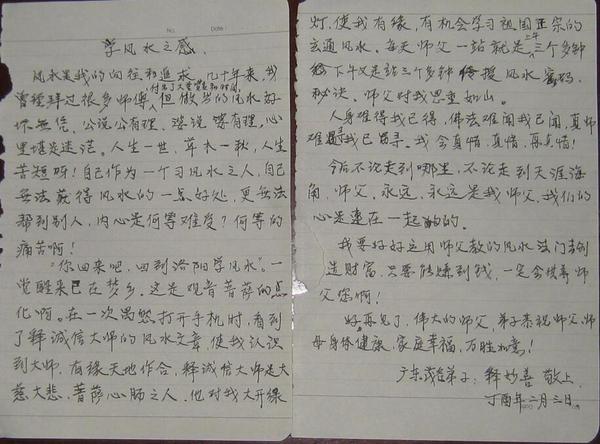 No.
Date
学风水之感.
风水是我的向往和追求,几十年来,我
付出了大量贵和时间
曾经拜过很多师傅,但做出的风水好
坏无凭.公说公有理.婆说婆有理,心
里堪是迷茫。人生一世,草木一秋,人生
苦短呀!自己作为一个习风水之人,自己
无法获得风水的一点好处.更无法
帮到别人,内心是何等难受?何等的
痛苦啊!
“你回来吧,回到洛阳学风水”.一
觉醒来已在梦乡.这是观音菩萨的点
化啊。在一次偶然打开手机时,看到
了释诚信大师的风水文章,使我认识
到大师.有缘天地作合,释诚信大师是大
慈大悲,菩萨心肠之人.他对我大开绿
灯.使我有缘,有机会学习祖国正宗的
玄通风水.每天师父一站就是三个多钟
上午
下午又是站三个多钟传授风水密码.
秘决.师父对我恩重如山。
人身难得我已得,佛法难闻我已闻,真师
难寻我已寻.我会真情.真情.再真情!
今后不论走到哪里,不论走到天涯海
角,师父.永远.永远是我师父,我们的
心是连在一起的。
我要好好运用师父教的风水法门去创
造财富.只要能赚到钱,一定会供养师
父您啊!
好,再见了,伟大的师父,弟子恭祝师父,师
母身体健康,家庭幸福,万胜如意!
广东茂名弟子:释妙善 敬上.
丁酉年二月三日.